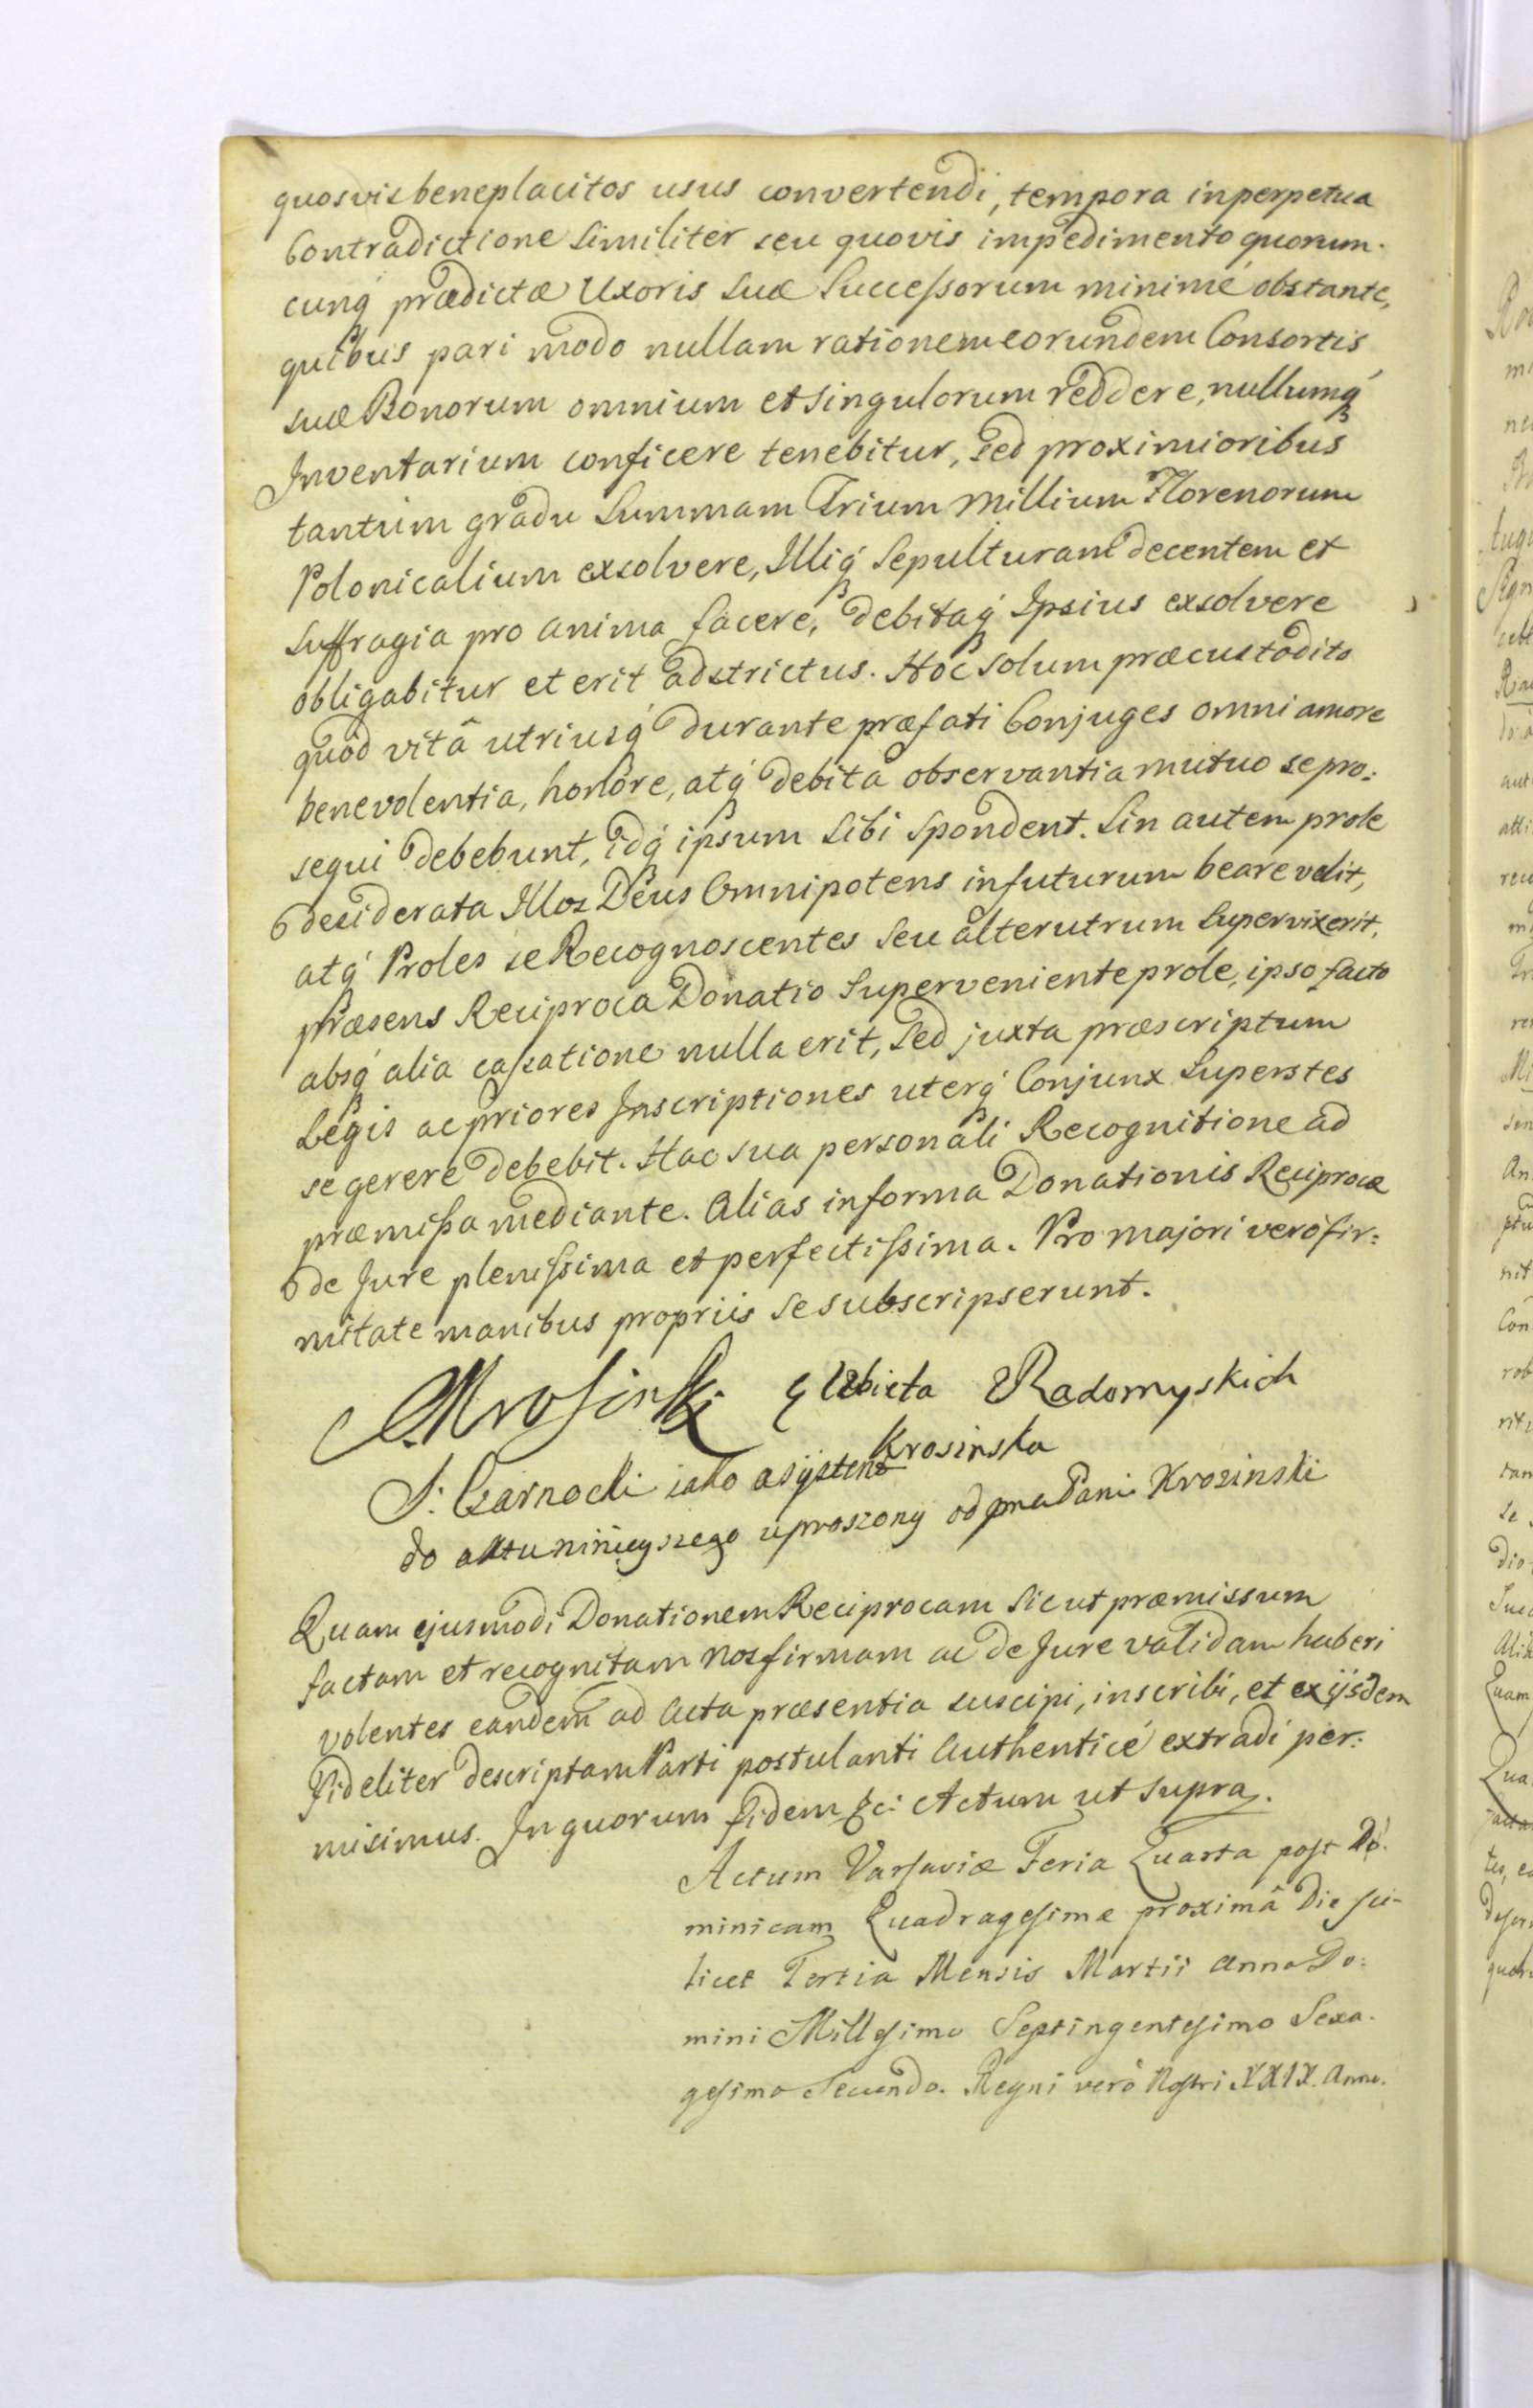 quosvis beneplacitos usus convertendi, tempora in perpetua
Contradictione Similiter seu quovis impedimento quorum.
cunq́ prædictæ Uxoris Suæ Successorum minimé obstante,
quibus pari modo nullam rationem eorundem Consortis
suæ Bonorum omnium et singulorum reddere, nullumq́
Inventarium conficere tenebitur, sed proximioribus
tantum gradu Summam Trium Millium Florenorum
Polonicalium exsolvere, Illiq́ Sepulturam decentem et
Suffragia pro anima facere, debitaq́ Ipsius exsolvere
obligabitur et erit adstrictus. Hoc solum præcustodito
quod vitâ utriusq́ durante præfati Conjuges omni amore
benevolentia, honore, atq́ debita observantia mutuo se pro:
sequi debebunt, idq́ ipsum Sibi Spondent. Sin autem prole
desiderata Illos Deus Omnipotens in futurum beare velit,
atq́ Proles se Recognoscentes Seu alterutrum Supervixerit,
præsens Reciproca Donatio Superveniente prole, ipso facto
absq́ alia cassatione nulla erit, Sed juxta præscriptum
Legis ac priores Inscriptiones uterq́ Conjunx Superstes
se gerere debebit. Hac sua personali Recognitione ad
præmissa mediante. Alias in forma Donationis Reciprocæ
de Jure plenissima et perfectissima. Pro majori verò fir:
mitate manibus propriis Se subscripserunt.
Krosinski Elżbieta Radomyskich
Krosinska
J: Czarnocki iako asystent
do aktu ninieyszego uproszony od Pani Krosinski
Quam ejusmodi Donationem Reciprocam Sicut præmissum
factam et recognitam Nos firmam ac de Jure validam haberi
volentes eandem ad Acta præsentia suscipi, inscribi, et ex ijsdem
fideliter descriptam Parti postulanti Authenticé extradi per:
misimus. In quorum fidem &c: Actum ut Supra.
Actum Varsaviæ Feria Quarta post Do:
minicam Quadragesimæ proximâ Die sci-
licet Tertia Mensis Martii Anno Do:
mini Millesimo Septingentesimo Sexa.
gesimo Secundo. Regni verò Nostri XXIX. Anno.